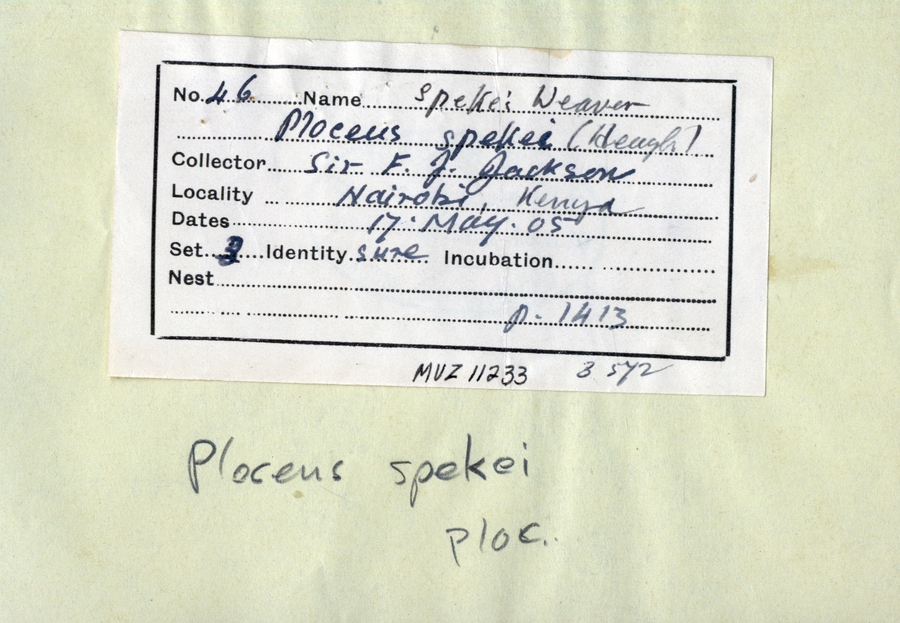 No. 46 Name Speke's Weaver
Ploceus spekei (Heugl.)
Collector Sir F. J. Jackson
Locality Nairobi, Kenya
Dates 17. May. 05
Set 3 Identity sure Incubation
Nest
p. 1413
MVZ 11233 3 572
Ploceus spekei
ploc..